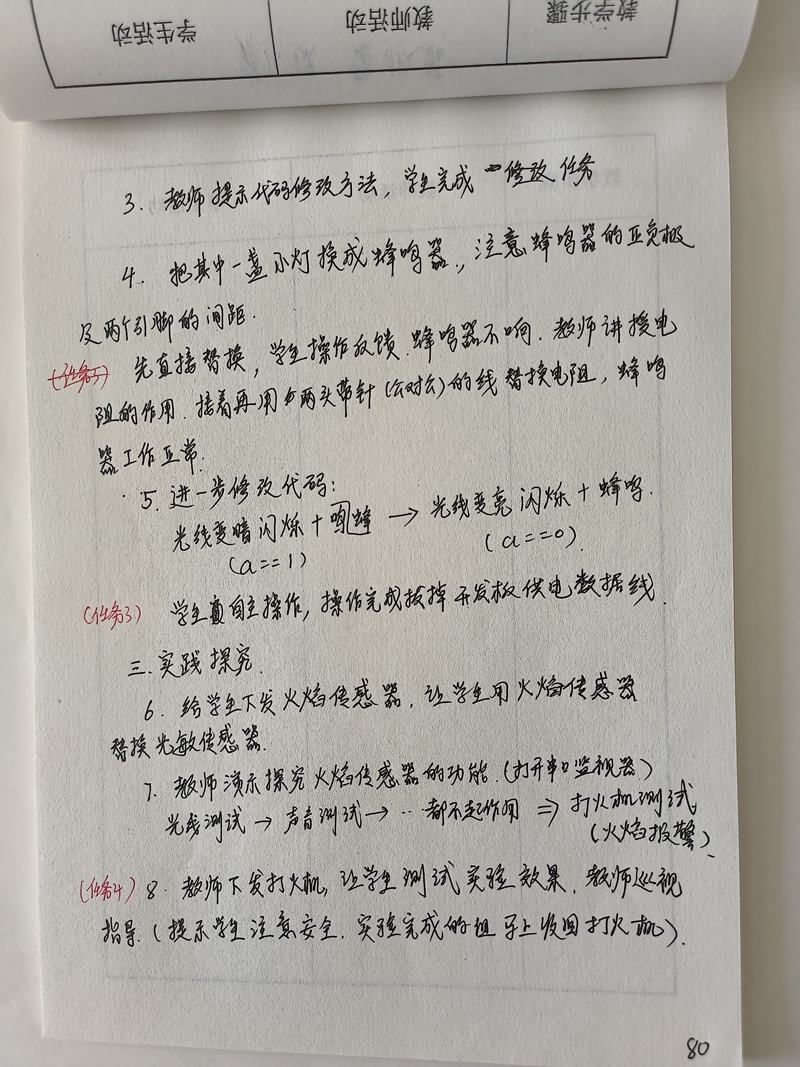 教学步骤 教师活动 学生活动
3. 教师提示代码修改方法，学生完成修改任务
4. 把其中一盏小灯换成蜂鸣器，注意蜂鸣器的正负极
及两个引脚的间距.
(任务3) 先直接替换，学生操作反馈.蜂鸣器不响.教师讲换电
阻的作用.接着再用两头带针(公对公)的线替换电阻，蜂鸣
器工作正常.
5. 进一步修改代码：
光线变暗闪烁+鸣蜂 → 光线变亮闪烁+蜂鸣.
(a==1) (a==0).
(任务3) 学生自主操作，操作完成拔掉开发板供电数据线.
三.实践探究.
6. 给学生下发火焰传感器，让学生用火焰传感器
替换光敏传感器.
7. 教师演示探究火焰传感器的功能.(打开串口监视器)
光线测试→声音测试→…都不起作用⇒打火机测试
(火焰报警)、
(任务4) 8. 教师下发打火机，让学生测试实验效果.教师巡视
指导.(提示学生注意安全.实验完成的组马上收回打火机).
80